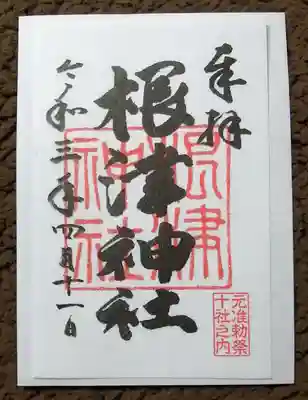 奉拝
根津神社
根津神社
元准勅祭
十社之内
令和三年四月十一日